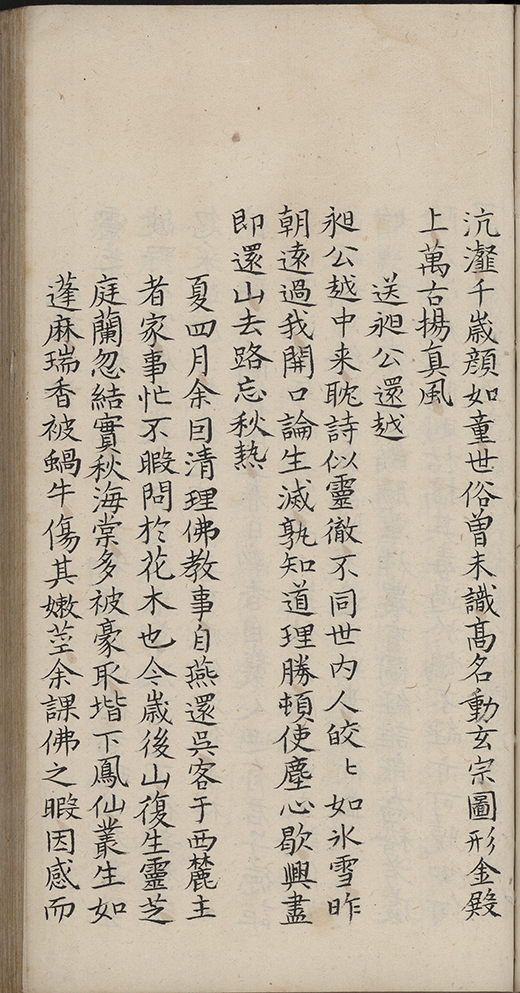 沆瀣千歳顔如童世俗曾未識髙名動玄宗圖形金殿
上萬古揚真風
送昶公還越
昶公越中来耽詩似靈徹不同世内人皎〻如氷雪昨
朝遠過我開口論生滅孰知道理勝頓使塵心歇興盡
即還山去路忘秋熱
夏四月余囙清理佛教事自燕還吳客于西麓主
者家事忙不暇問於花木也今歳後山復生靈芝
庭蘭忽結實秋海棠多被豪取堦下鳳仙叢生如
蓬麻瑞香被蝸牛傷其嫰莖余課佛之暇因感而